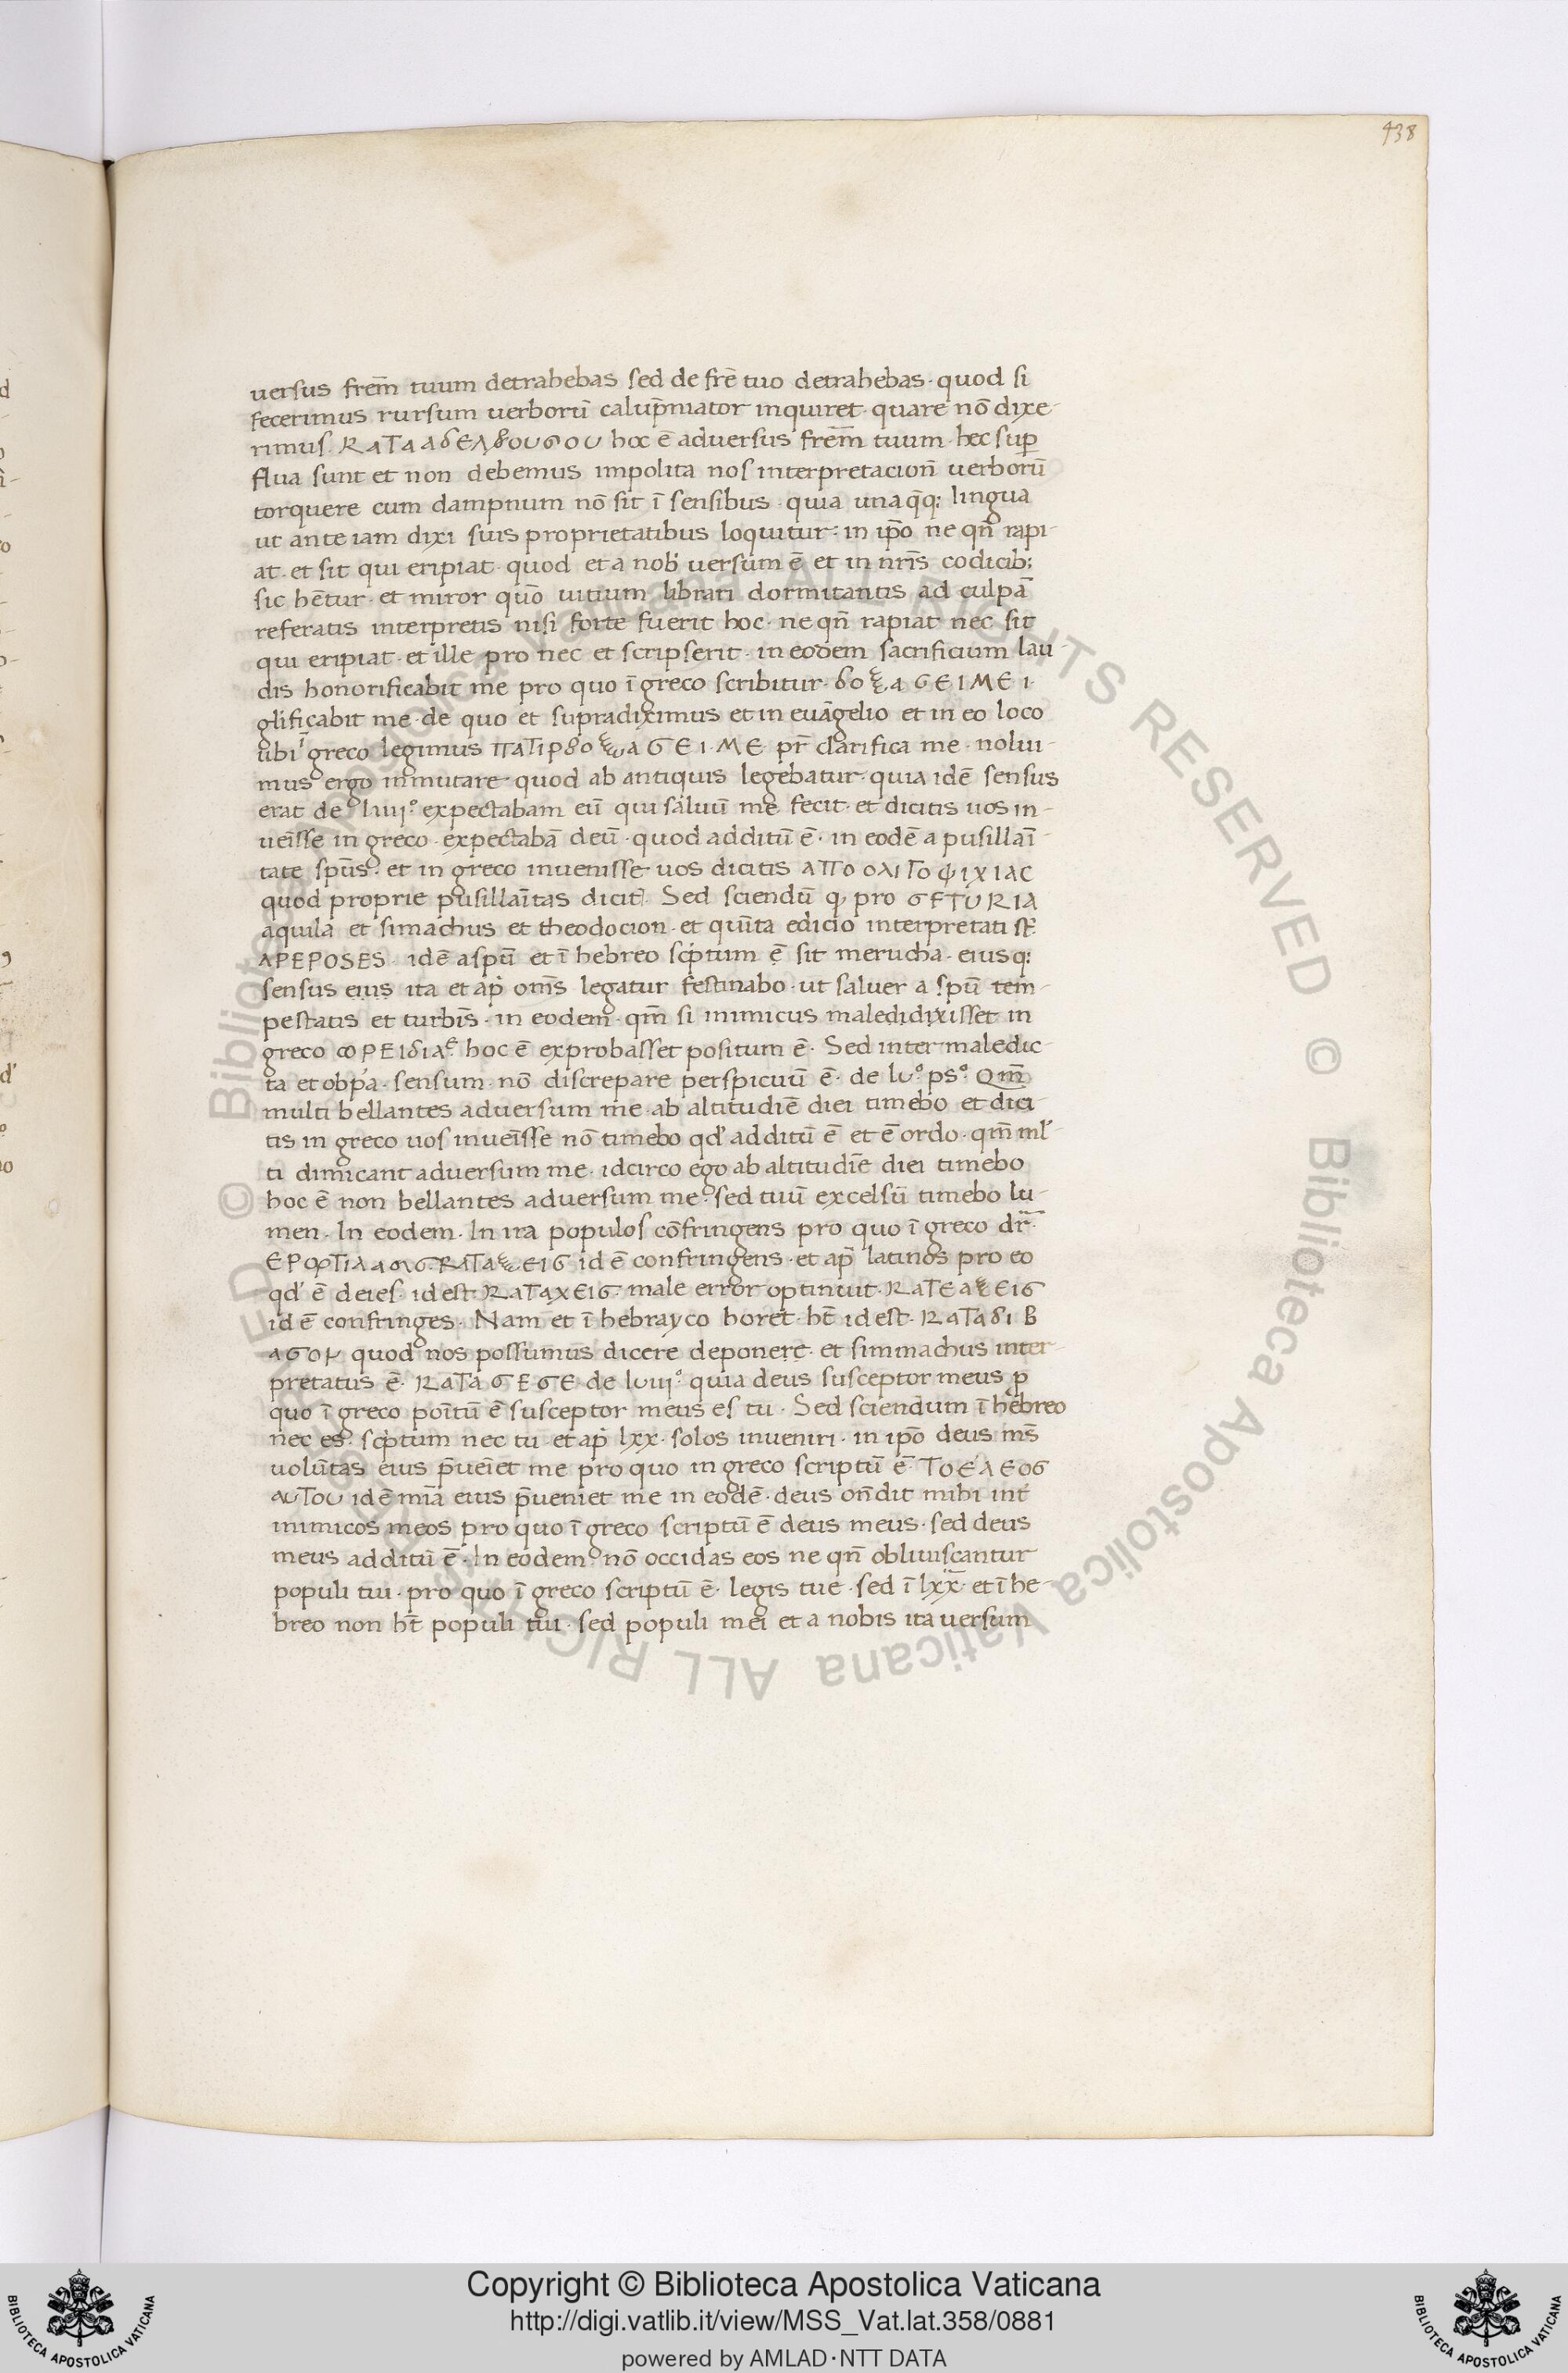 438
versus frem̄ tuum detrahebas sed de frē tuo detrahebas · quod si
fecerimus rursum verborū calup̄niator inquiret · quare nō dixe-
rimus · RATA AδEΛδOUσOU hoc ē adversus frem̄ tuum · hec sup̄
flua sunt et non debemus impolita nos interpretacion̄ verborū
torquere cum dampnum nō sit ī sensibus · quia una q̄q; lingua
ut ante iam dixi suis proprietatibus loquitur · in ip̄o ne qn̄ rapi-
at · et sit qui eripiat · quod et a nob' versum ē et in nr̄is codicib;
sic hētur · et miror quō vitium librari dormitantis ad culpā
referatis interpretis nisi forte fuerit hoc · ne qn̄ rapiat nec sit
qui eripiat · et ille pro nec et scripserit · in eodem sacrificium lau-
dis honorificabit me pro quo ī greco scribitur · δOξAσEIMEI ·
glificabit me · de quo et supradiximus et in evāgelio et in eo loco
ubi ī greco legimus ΠATIPδOξωAσEI·ME· pr̄ clarifica me · nolui-
mus ergo inmutare quod ab antiquis legebatur · quia idē sensus
erat de liiii° expectabam eū qui salvū me fecit · et dicitis vos in-
veīsse in greco · expectabā deū · quod additū ē · in eodē a pusillaī-
tate spūs · et in greco invenisse vos dicitis AΠO OΛIΓOψIXIAC
quod proprie pusillaītas dicit᷑ · Sed sciendū ꝙ pro σETURIA
aquila et simachus et theodocion · et quīta edicio interpretati sт̄
APEPOSES · idē a spū et ī hebreo scp̄tum ē sit merucha · eiusq;
sensus eius ita et ap̄ oms̄ legatur festinabo · ut salver a spū tem-
pestatis et turbīs · in eodem · qm̄ si inimicus maledidixisset in
greco ωPEIδIAε̄ · hoc ē exprobasset positum ē · Sed inter maledic-
ta et obp̄a · sensum · nō discrepare perspicuū ē · de lv° ps° Qm̄
multi bellantes adversum me · ab altitudiē diei timebo et dici-
tis in greco vos inveīsse nō timebo qd' additū ē et ē ordo · qm̄ ml'-
ti dimicant adversum me · idcirco ego ab altitudīe diei timebo
hoc ē non bellantes adversum me · sed tuū excelsū timebo lu-
men · In eodem · In ira populos cōfringens pro quo ī greco dr̄ ·
id ē confringens · et ap̄ latinos pro eo
qd' ē deies · id est RATAXEIσ · male error optinuit · RATEAξEIσ
id ē confringes · Nam et ī hebrayco horet · ht̄ id est · RATAδIB
AσOΝ quod nos possumus dicere deponere · et simmachus inter-
pretatus ē · RATAσEσE · de lviii° quia deus susceptor meus p̄
quo ī greco poītū ē susceptor meus es tu · Sed sciendum ī hebreo
nec es · scp̄tum nec tu et ap̄ lxx · solos inveniri · in ip̄o deus ms̄
volūtas eius p̄veīet me pro quo in greco scriptū ē · TOEΛEOσ
AUTOU id ē mīa eius p̄veniet me in eodē · deus on̄dit mihi int̄
inimicos meos pro quo ī greco scriptū ē deus meus · sed deus
meus additū ē · In eodem · nō occidas eos ne qn̄ obliviscantur
populi tui · pro quo ī greco scriptū ē · legis tue · sed ī lxx̄ · et ī he-
breo non ht̄ populi tui · sed populi mei et a nobis ita versum
© Biblioteca Apostolica Vaticana ALL RIGHTS RESERVED © Biblioteca Apostolica Vaticana ALL RIGHTS RESERVED
Copyright © Biblioteca Apostolica Vaticana
http://digi.vatlib.it/view/MSS_Vat.lat.358/0881
powered by AMLAD·NTT DATA
BIBLIOTECA APOSTOLICA VATICANA
BIBLIOTECA APOSTOLICA VATICANA